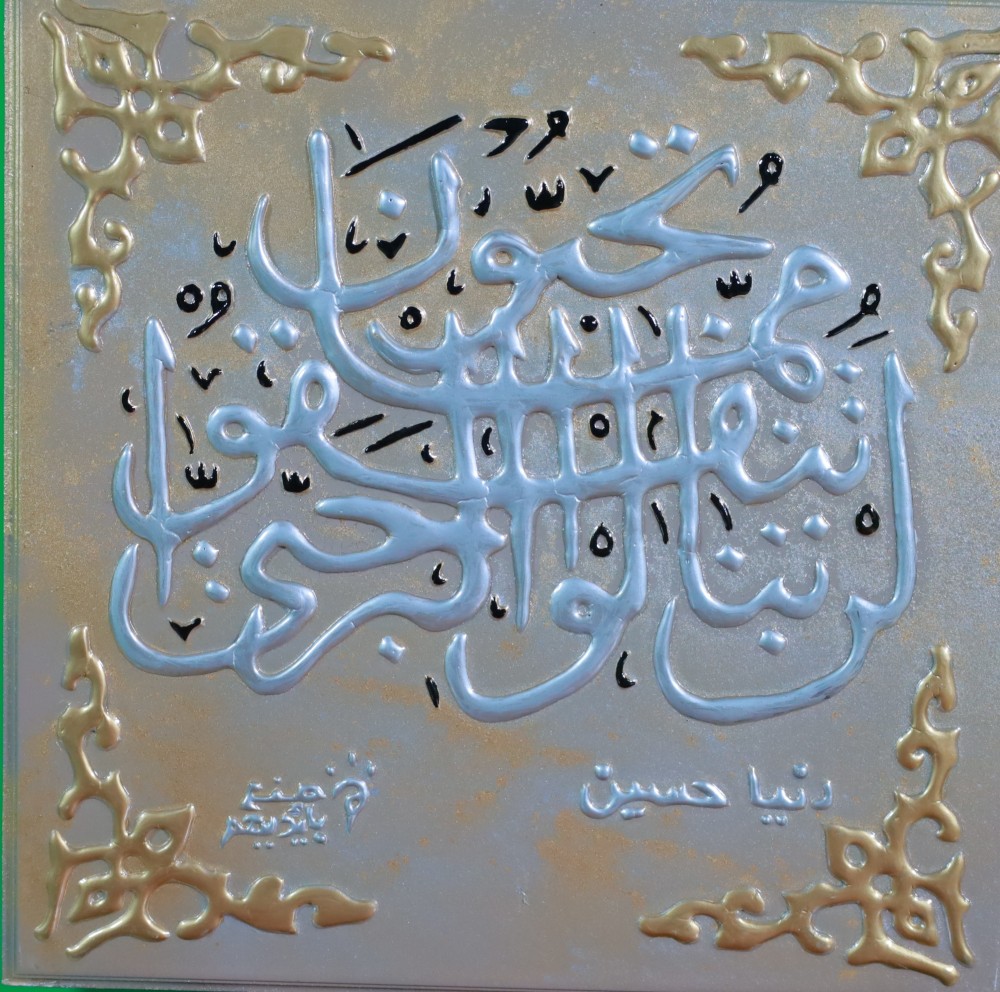 لن تنالوا البر حتى
تنفقوا مما تحبون
دنيا حسين
صنع
بأيديهم